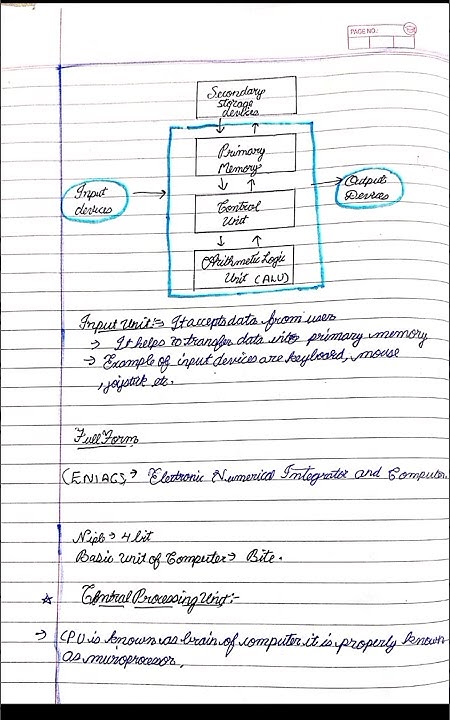 PAGE NO.:
Secondary
storage
devices
Primary
Memory
Input
devices
Control
Unit
Output
Devices
Arithmetic Logic
Unit (ALU)
Input Unit:- It accepts data from user
→ It helps to transfer data into primary memory
→ Example of input devices are keyboard, mouse
, joystick etc.
Full Form
(ENIACS → Electronic Numerical Integrator and Computer.
Nipb → 4 bit
Basic Unit of Computer → Bite.
☆ Central Processing Unit:-
→ CPU is known as brain of computer it is properly known
as microprocessor.